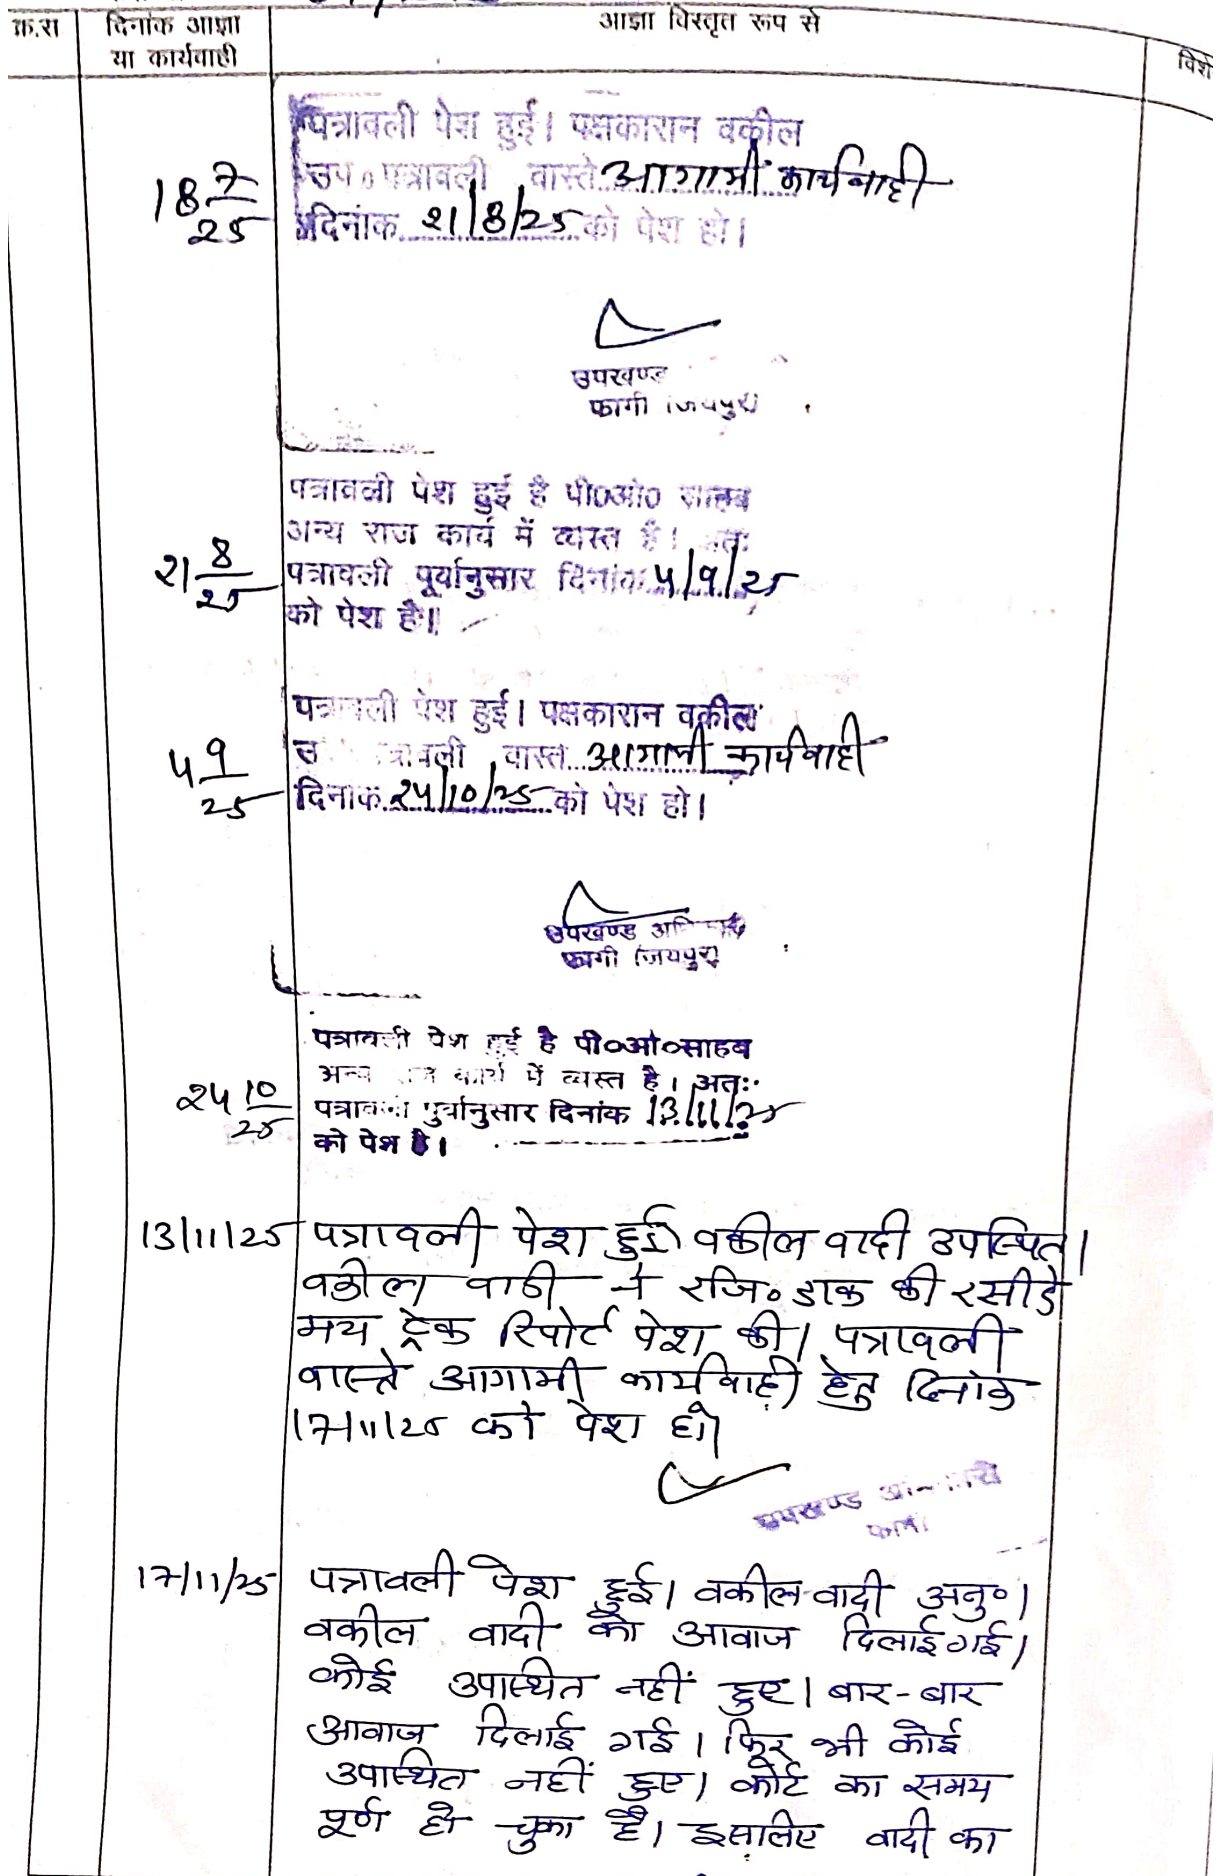 क्र.सं
दिनांक आज्ञा
या कार्यवाही
आज्ञा विस्तृत रूप से
पत्रावली पेश हुई। पक्षकारान वकील
उप० पत्रावली वास्ते आगामी कार्यवाही
18 7/25
दिनांक 21/8/25 को पेश हो।
उपखण्ड
फागी (जयपुर)
पत्रावली पेश हुई है पी०ओ० साहब
अन्य राज कार्य में व्यस्त है। अतः
21 8/25
पत्रावली पूर्वानुसार दिनांक 4/9/25
को पेश है।
पत्रावली पेश हुई। पक्षकारान वकील
वास्ते आगामी कार्यवाही
4 9/25
दिनांक 24/10/25 को पेश हो।
उपखण्ड अधिकारी
फागी (जयपुर)
पत्रावली पेश हुई है पी०ओ०साहब
अन्य राज कार्य में व्यस्त है। अतः
24 10/25
पत्रावली पुर्वानुसार दिनांक 13/11/25
को पेश है।
13/11/25 पत्रावली पेश हुई। वकील वादी उपस्थित।
वकील वादी ने रजि० डाक की रसीदे
मय ट्रेक रिपोर्ट पेश की। पत्रावली
वास्ते आगामी कार्यवाही हेतु दिनांक
17/11/25 को पेश हो।
उपखण्ड अधिकारी
फागी
17/11/25 पत्रावली पेश हुई। वकील वादी अनु०।
वकील वादी को आवाज दिलाई गई।
कोई उपस्थित नहीं हुए। बार-बार
आवाज दिलाई गई। फिर भी कोई
उपस्थित नहीं हुए। कोर्ट का समय
पूर्ण हो चुका है। इसलिए वादी का